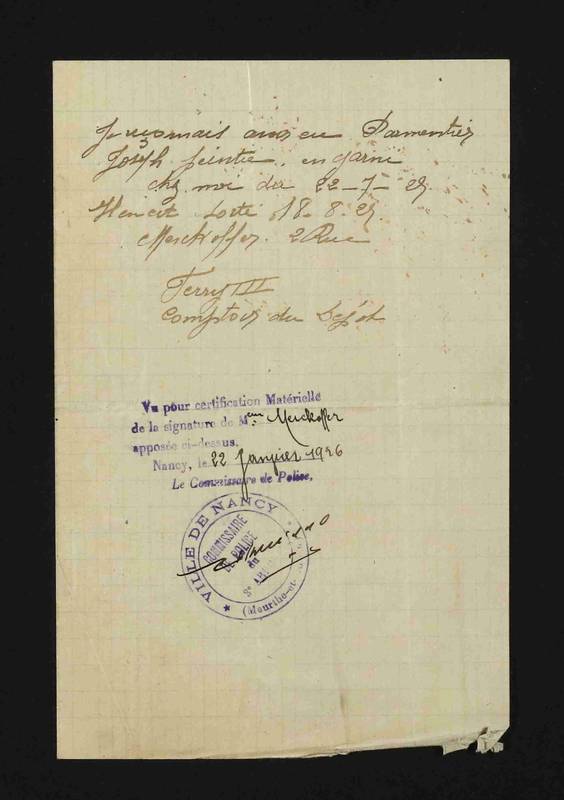 Parmentier
Joseph peintre. en garni
chez moi du 22-7-25
sorti 18.8.25
Merckoffer. 2 Rue
Ferry III
Comptoir du Dépôt
Vu pour certification Matérielle
de la signature de Mme Merckoffer
apposée ci-dessus.
Nancy, le 22 Janvier 1926
Le Commissaire de Police,
VILLE DE NANCY
COMMISSAIRE
DE POLICE
du
(Meurthe-et-